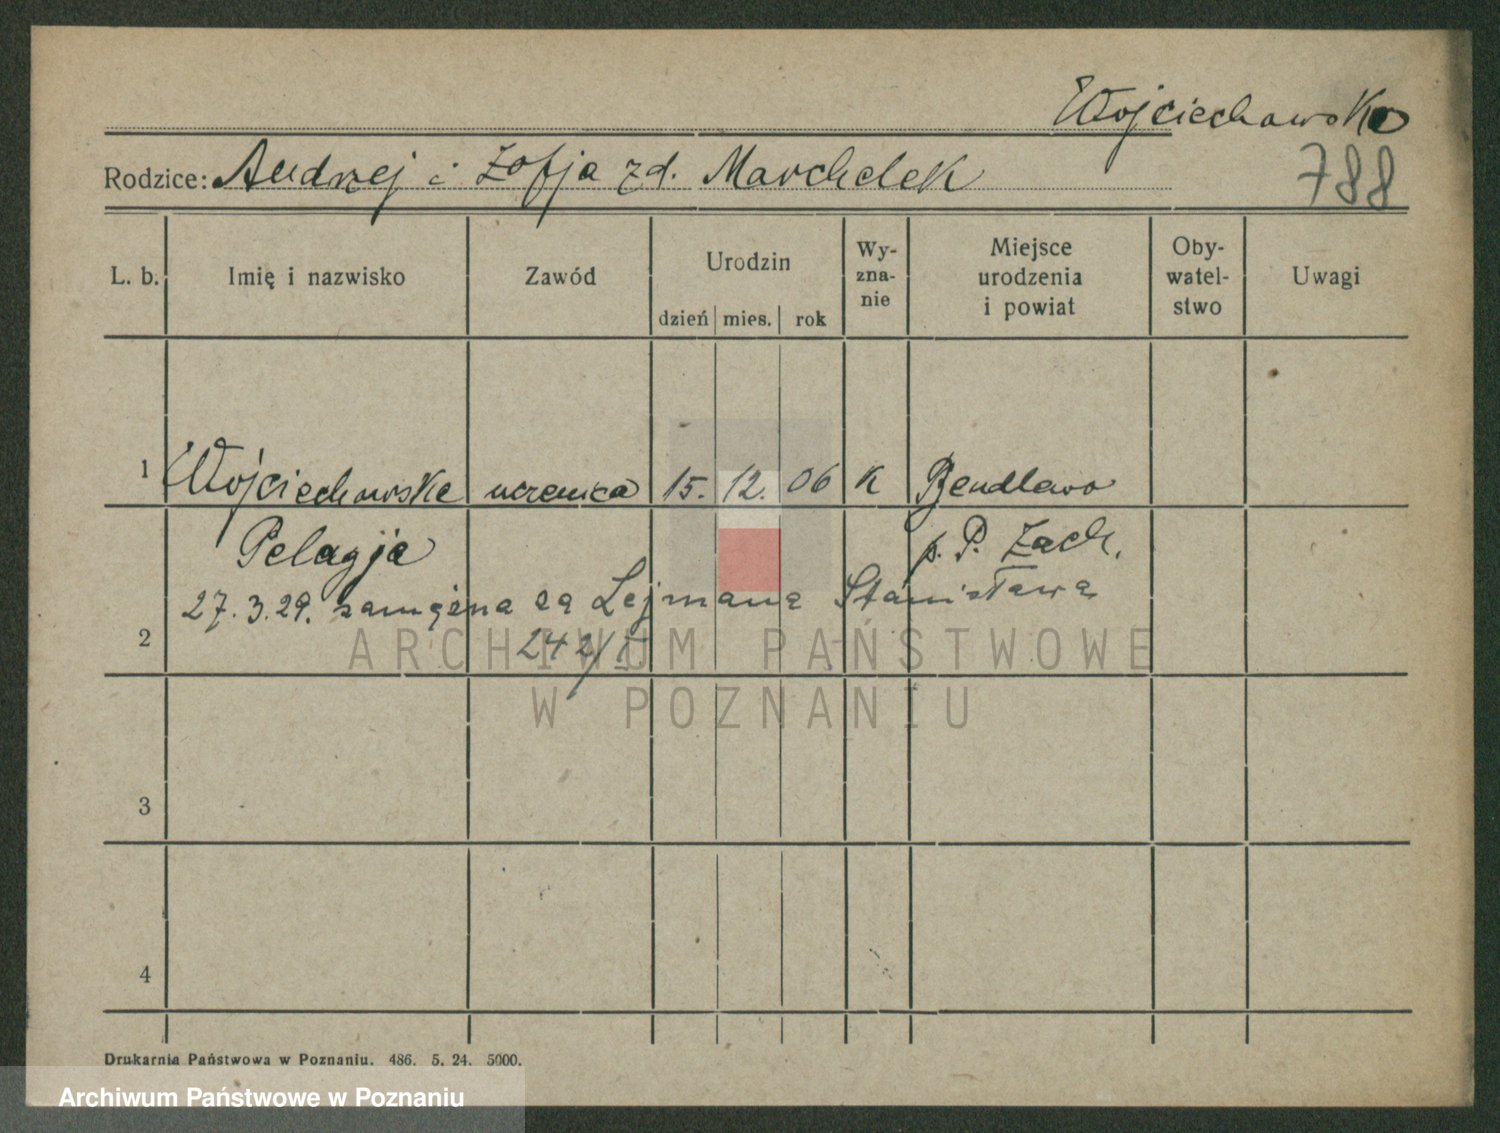 Wojciechowska
Rodzice: Andrzej i Zofja zd. Marchelek
788
L. b. Imię i nazwisko Zawód Urodzin dzień mies. rok Wy-zna-nie Miejsce urodzenia i powiat Oby-watel-stwo Uwagi
1 Wojciechowska uczenica 15. 12. 06 K Bendlewo
Pelagja p. P. Zach.
27.3.29. zamężna za Lejmana Stanisława
2 242/I
ARCHIWUM PAŃSTWOWE
W POZNANIU
3
4
Drukarnia Państwowa w Poznaniu. 486. 5. 24. 5000.
Archiwum Państwowe w Poznaniu